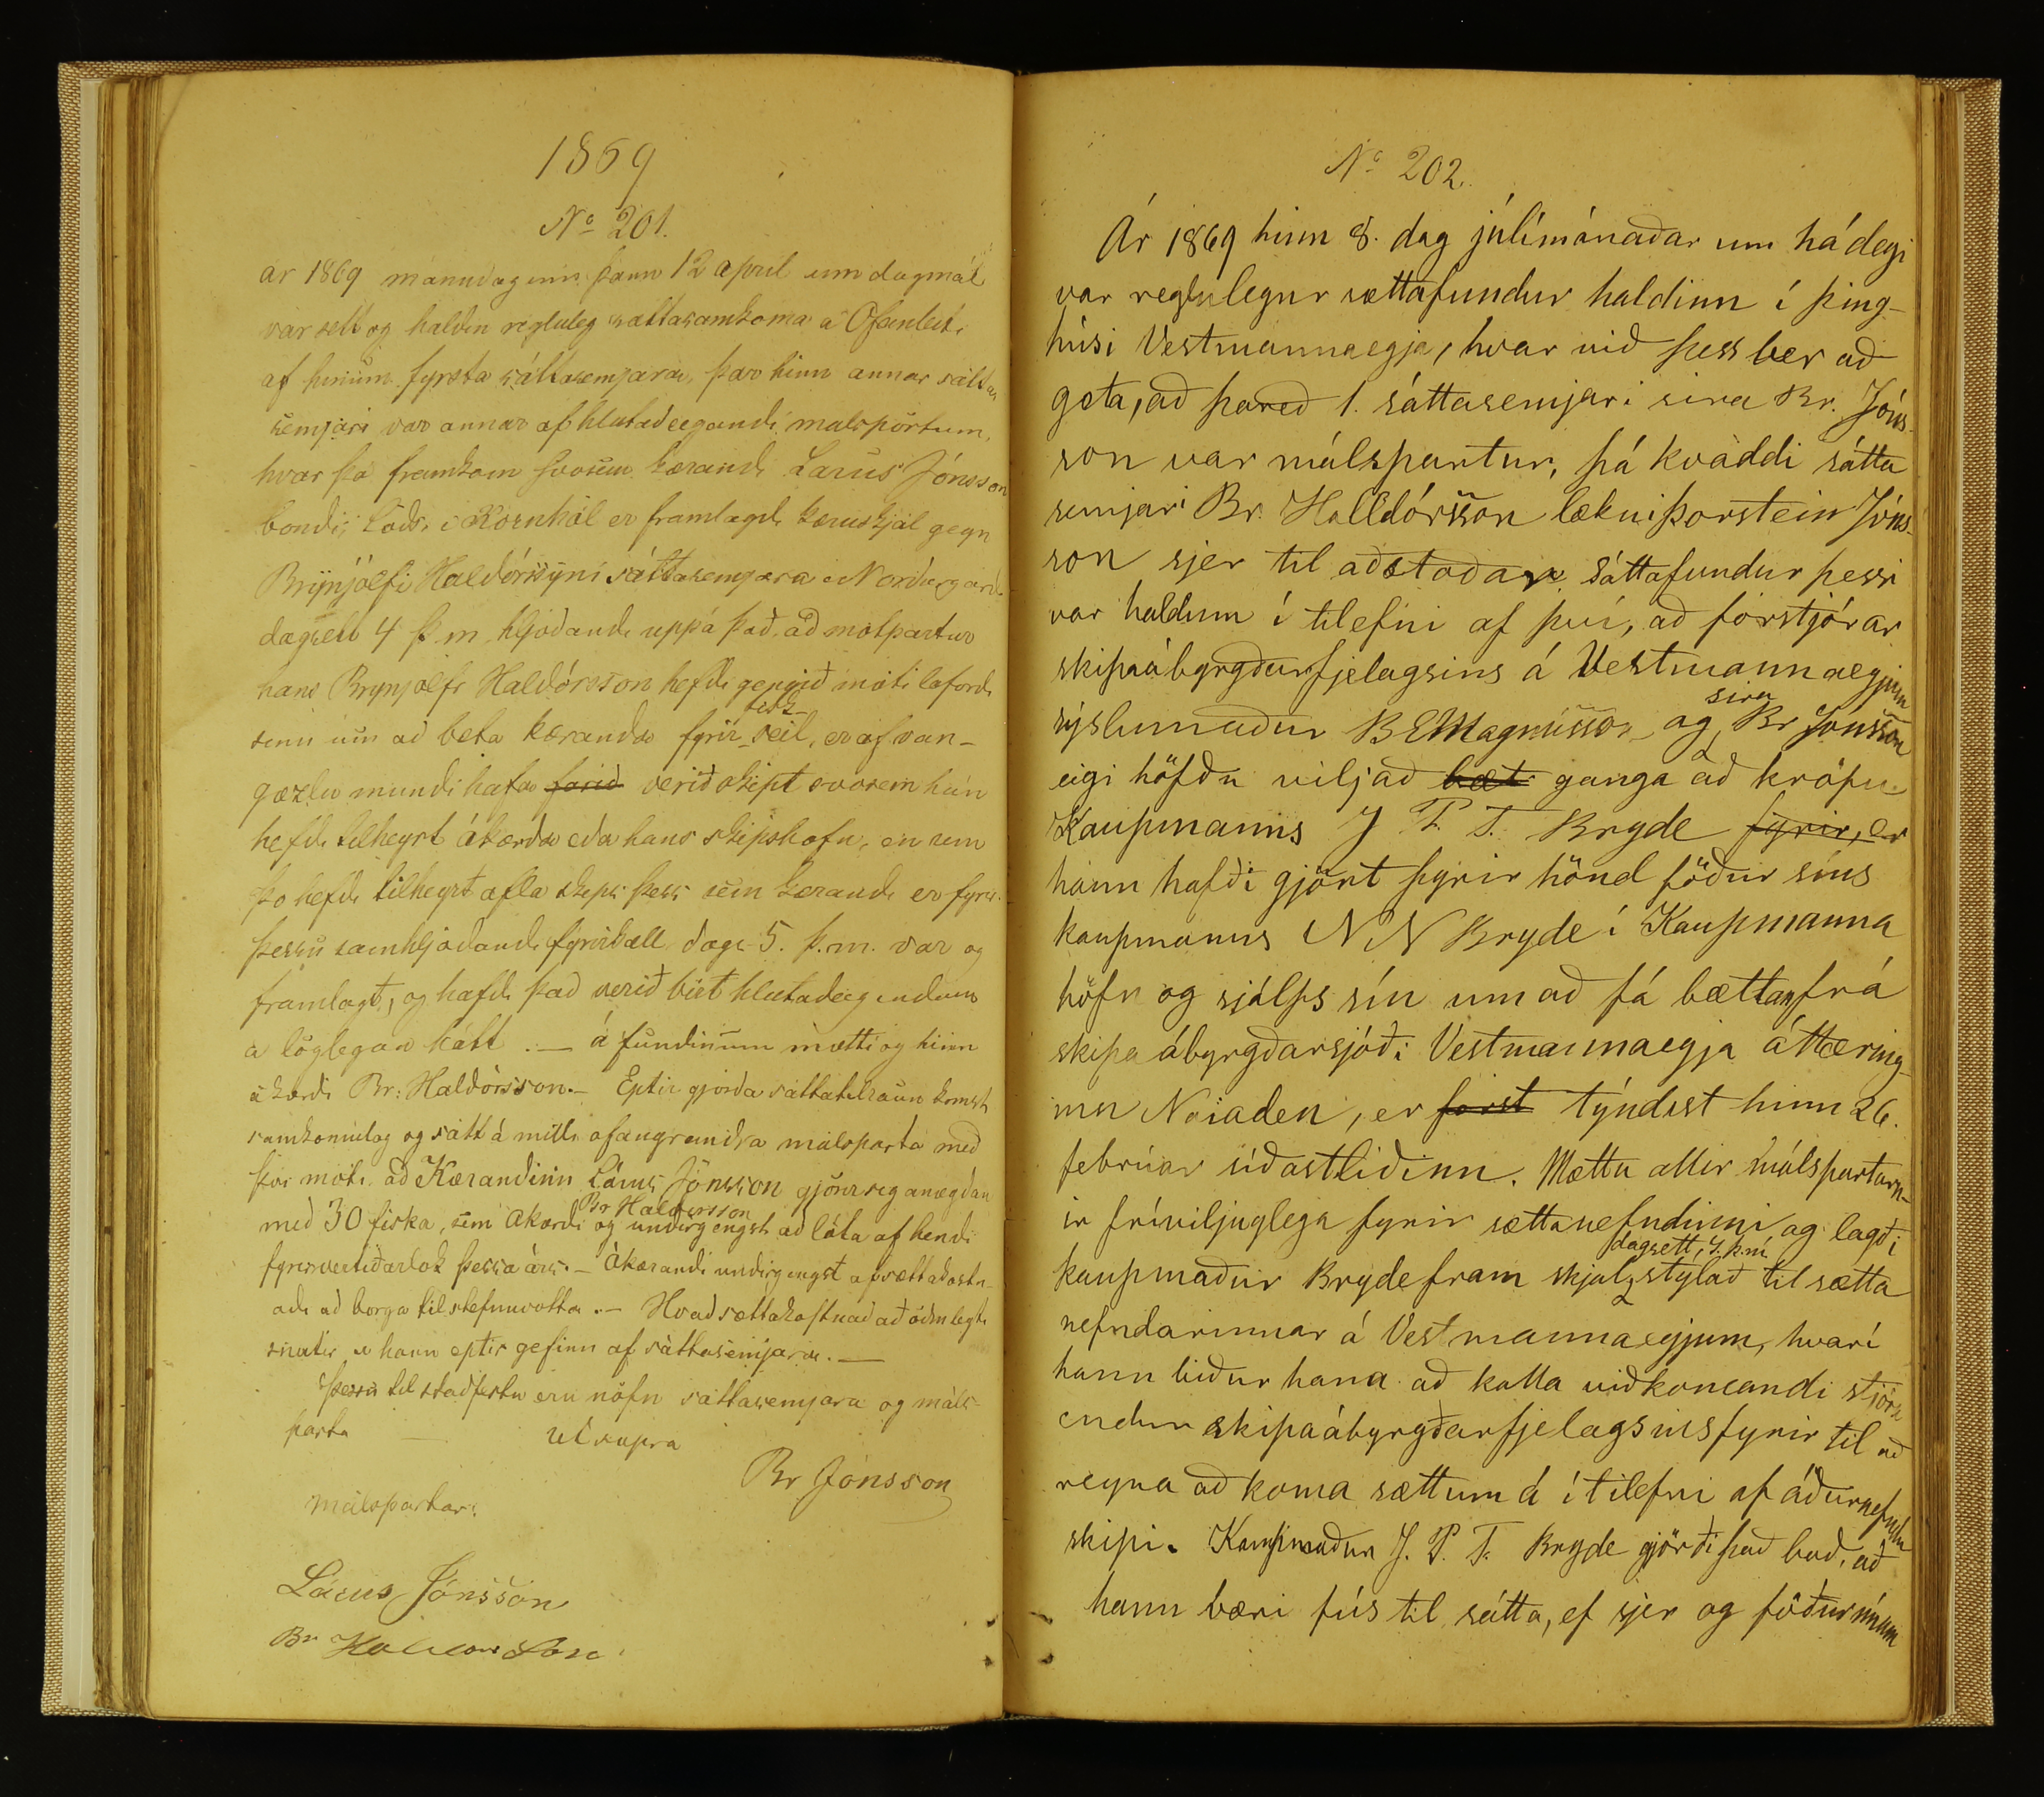 1869
No 201.
ár 1869 mánudaginn þann 12 april um dagmál
var sett og haldin regluleg sáttasamkoma á Ofanleiti
af hinum fyrsta sáttasemjara, þar hinn annar sátta
semjari var annar af hlutadeegandi malspörtum,
hvar þá framkom svosem kærandi Larus Jónsson
bondi, Lóds, i Kornhól er framlagdi kæruskjal gegn
Brynjólfi Haldórssyni sáttasemjara i Nordurgardi
dagsett 4 þ.m. hljodandi uppá það, að motpartur
hans Brynjolfr Haldórsson hefdi gengið móti loforde
sinu um að beta kæranda fyrir fisk-seil, er af van-
gæzlu mundi hafa farið verið skipt svosem hún
hefdi tilheyrt ákærda eda hans skipshöfn, en sem
þo hefdi tilheyrt afla skips þess sem kærandi er fyrir.
þessu samhljodandi fyrirkall dags. 5. þ.m. var og
framlagt, og hafdi það verið birt hlutadeigendum
a löglegan hátt. — á fundinum mætti og hinn
ákærdi Br: Haldórsson. — Eptir gjörda sáttatilraun komst
samkomulag og sátt á milli ofangreindra málsparta með
því móti, að Kærandinn Lárus Jónsson gjörir sig anægðan
með 30 fiska, sem Akærdi Br Haldorsson og undirgengst að láta af hendi
fyrir vertíðarlok þessa árs. — Ákærandi undirgengst af sættakostn-
aði að borga til stefnuvotta. — Hvað sættakostnað að öðru leyti
snertir er hann eptir gefinn af sáttasemjara. —
Þessu til staðfestu eru nöfn sáttasemjara og máls-
parta — ut supra
Br Jónsson
Málspartar:
Lárus Jónsson
Br Haldorsson
No 202.
Ár 1869 hinn 8. dag júlímánaðar um hádegi
var reglulegur sættafundur haldinn í þing-
húsi Vestmannaeyja, hvar við þess ber að
geta, að þareð 1. sáttasemjari sira Br. Jóns-
son var málspartur, þá kvaddi sátta
semjari Br. Halldórsson lækni Þorstein Jóns-
son sjer til aðstoðar. Sáttafundur þessi
var haldinn í tilefni af því, að forstjórar
skipaábyrgðarfjelagsins á Vestmannaeyjum
sýslumaður B E Magnússon og sira Br Jónsson
eigi höfðu viljað bæt ganga að kröfu
Kaupmanns J P. T. Bryde fyrir, er
hann hafði gjört fyrir hönd föður síns
kaupmanns N N Bryde í Kaupmanna
höfn og sjálfs sín um að fá bættan frá
skipa ábyrgðarsjóði Vestmannaeyja áttæring-
inn Noiaden, er forst týndist hinn 26.
febrúar síðastliðinn. Mættu allir málspartarn-
ir fríviljuglega fyrir sættanefndinni og lagði
kaupmaður Bryde fram skjal, dagsett 7. þ.m. stýlað til sætta
nefndarinnar á Vestmannaeyjum, hvarí
hann biður hana að kalla viðkomandi stjórn
endur skipaábyrgðarfjelagsins fyrir til að
reyna að koma sættum á í tilefni af áðurnefndu
skipi. Kaupmaður J. P. T. Bryde gjörði það boð, að
hann væri fús til sátta, ef sjer og föður sínum